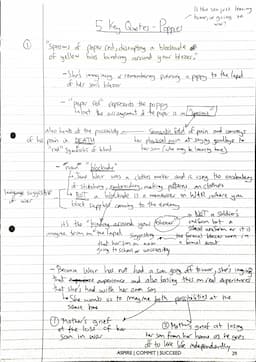 Is the son just leaving
home, or going to
war?
5 Key Quotes - Poppies
① "Spasms of paper red, disrupting a blockade of
of yellow bias binding around your blazer."
- She's imagining or remembering pinning a poppy to the lapel
of her son's blazer
- "paper red" represents the poppy
what the arrangement of the paper is in a "spasms"
Also hints at the possibility
of his pain is DEATH
"red" symbols of blood
of pain and conveys
her physical pain at saying goodbye to
her son (who may be leaving too)
- "blockade"
↳ Jane Weir was a clothes maker and is using the
of stitching, embroidering, making patterns on clothes
↳ BUT a blockade is a manoeuvre in WW1 where you
block supplies coming to the enemy
language suggestive
of war
it's the "binding around your blazer"
imagine from on the lapel
→ NOT a soldier's
uniform but a
school uniform or it is
the formal blazer worn in
a formal event
suggesting
that her son is now
going to school or university
- "Because Weir has not had a son going off to war, she's imagining
that experience and also using this on real experiences
that she's had with her own son
↳ She wants us to imagine both possibilities at the
same time
① Mother's grief
at the loss of her
son in war
② Mother's grief at losing
her son from her home as he goes
off to live life independently
ASPIRE | COMMIT | SUCCEED
29